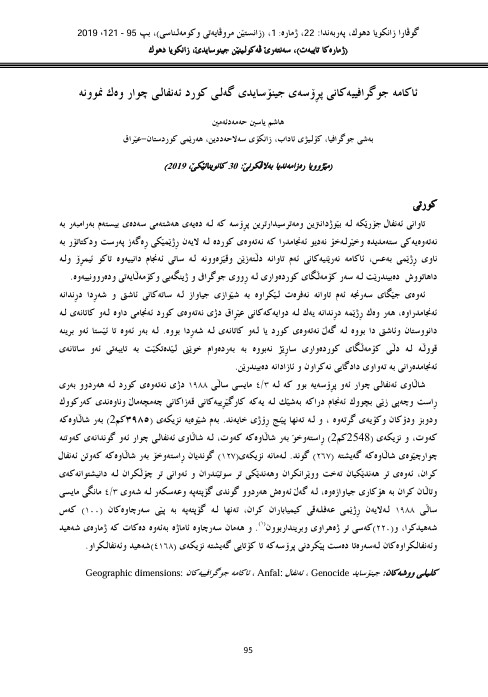 گوڤارا زانكویا دهوك، پەربەندا: 22، ژمارە: 1، (زانستێن مروڤایەتی وكومەلناسی)، بپ 95 - 121، 2019
(ژمارەكا تایبەت)، سەنتەرێ ڤەكولینێن جینوسایدێ، زانكویا دهوك
ئاكامە جوگرافییەكانی پرۆسەی جینۆسایدی گەلی كورد ئەنفالی چوار وەك نموونە
هاشم یاسین حەمەدئەمین
بەشی جوگرافیا، كۆلیژی ئاداب، زانكۆی سەلاحەددین، هەرێمی كوردستان-عێراق
(مێژوویا رەزامەندیا بەلاڤكرنێ: 30 كانوینائێكێ، 2019)
كورتی
تاوانی ئەنفال جۆرێكە لە بێوژدانترین ومەترسیدارترین پرۆسە كە لە دەیەی هەشتەمی سەدەی بیستەم بەرامبەر بە
نەتەوەیەكی ستەمدیدە وخێرلەخۆ نەدیو ئەنجامدرا كە نەتەوەی كوردە لە لایەن رژێمێكی رەگەز پەرست ودكتاتۆر بە
ناوی رژێمی بەعس، ئاكامە نەرێنیەكانی ئەم تاوانە دڵتەزێن وقێزەونە لە ساتی ئەنجام دانییەوە تاكو ئیمڕۆ ولە
داهاتووش دەبیندرێت لە سەر كۆمەڵگای كوردەواری لە ڕووی جوگرافی و ژینگەیی وكۆمەڵایەتی ودەروونییەوە.
ئەوەی جێگای سەرنجە ئەم تاوانە نەفرەت لێكراوە بە شێوازی جیاواز لە ساتەكانی ئاشتی و شەڕدا درندانە
ئەنجامدراوە، هەر وەك ڕژێمە درندانە یەك لە دوایەكەكانی عێراق دژی نەتەوەی كورد ئەنجامی داوە لەو كاتانەی لە
دانووستان وناشتی دا بووە لە گەڵ نەتەوەی كورد یا لەو كاتانەی لە شەڕدا بووە. لە بەر ئەوە تا ئێستا ئەو برینە
قووڵە لە دڵی كۆمەڵگای كوردەواری ساڕێژ نەبووە بە بەردەوام خوێنی لێدەتكێت بە تایبەتی ئەو ساتانەی
ئەنجامدەرانی بە تەواوی دادگایی نەكراون و ئازادانە دەبیندرێن.
شاڵاوی ئەنفالی چوار ئەو پرۆسەیە بوو كە لە ٤/٣ مایسی ساڵی ١٩٨٨ دژی نەتەوەی كورد لە هەردوو بەری
ڕاست وچەپی زێی بچووك ئەنجام دراكە بەشێك لە یەكە كارگێڕییەكانی قەزاكانی چەمچەماڵ وناوەندی كەركووك
ودوبز ودۆكان وكۆیەی گرتەوە ، و لە تەنها پێنج ڕۆژی خایەند. بەم شێوەیە نزیكەی (٣٩٨٥كم2) بەر شاڵاوەكە
كەوت، و نزیكەی (2548كم2) ڕاستەوخۆ بەر شاڵاوەكە كەوت، لە شاڵاوی ئەنفالی چوار ئەو گوندانەی كەوتنە
چوارچێوەی شاڵاوەكە گەیشتنە (٢٦٧) گوند. لەمانە نزیكەی(١٢٧) گوندیان ڕاستەوخۆ بەر شاڵاوەكە كەوتن ئەنفال
كران، ئەوەی تر هەندێكیان تەخت ووێرانكران وهەندێكی تر سوتێندران و ئەوانی تر چۆڵكران لە دانیشتوانەكەی
وتاڵان كران بە هۆكاری جیاوازەوە، لە گەڵ ئەوەش هەردوو گوندی گۆپتەپە وعەسكەر لە شەوی ٤/٣ مانگی مایسی
ساڵی ١٩٨٨ لەلایەن ڕژێمی عەفلەقی كیمیاباران كران، تەنها لە گۆپتەپە بە پێی سەرچاوەكان (١٠٠) كەس
شەهیدكرا، و(٢٢٠)كەسی تر ژەهراوی وبرینداربوون(١). و هەمان سەرچاوە ئاماژە بەئەوە دەكات كە ژمارەی شەهید
وئەنفالكراوەكان لەسەرەتا دەست پێكردنی پرۆسەكە تا كۆتایی گەیشتە نزیكەی (٤١٦٨)شەهید وئەنفالكراو.
كلیلی ووشەكان: جینۆساید Genocide ، ئەنفال: Anfal ، ئاكامە جوگرافییەكان: Geographic dimensions
95